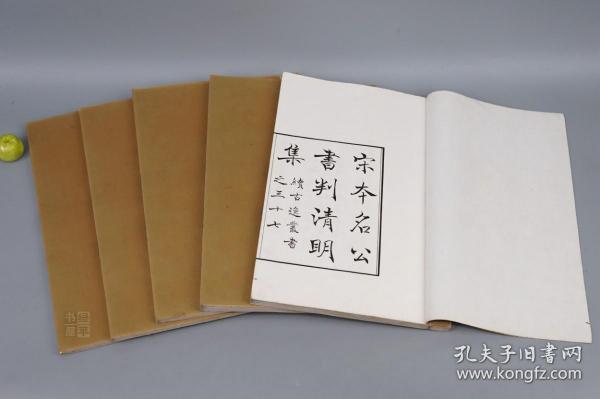 宋本名公
書判清明
集
續古逸叢書
之三十七
孔夫子旧书网
www.kongfz.com